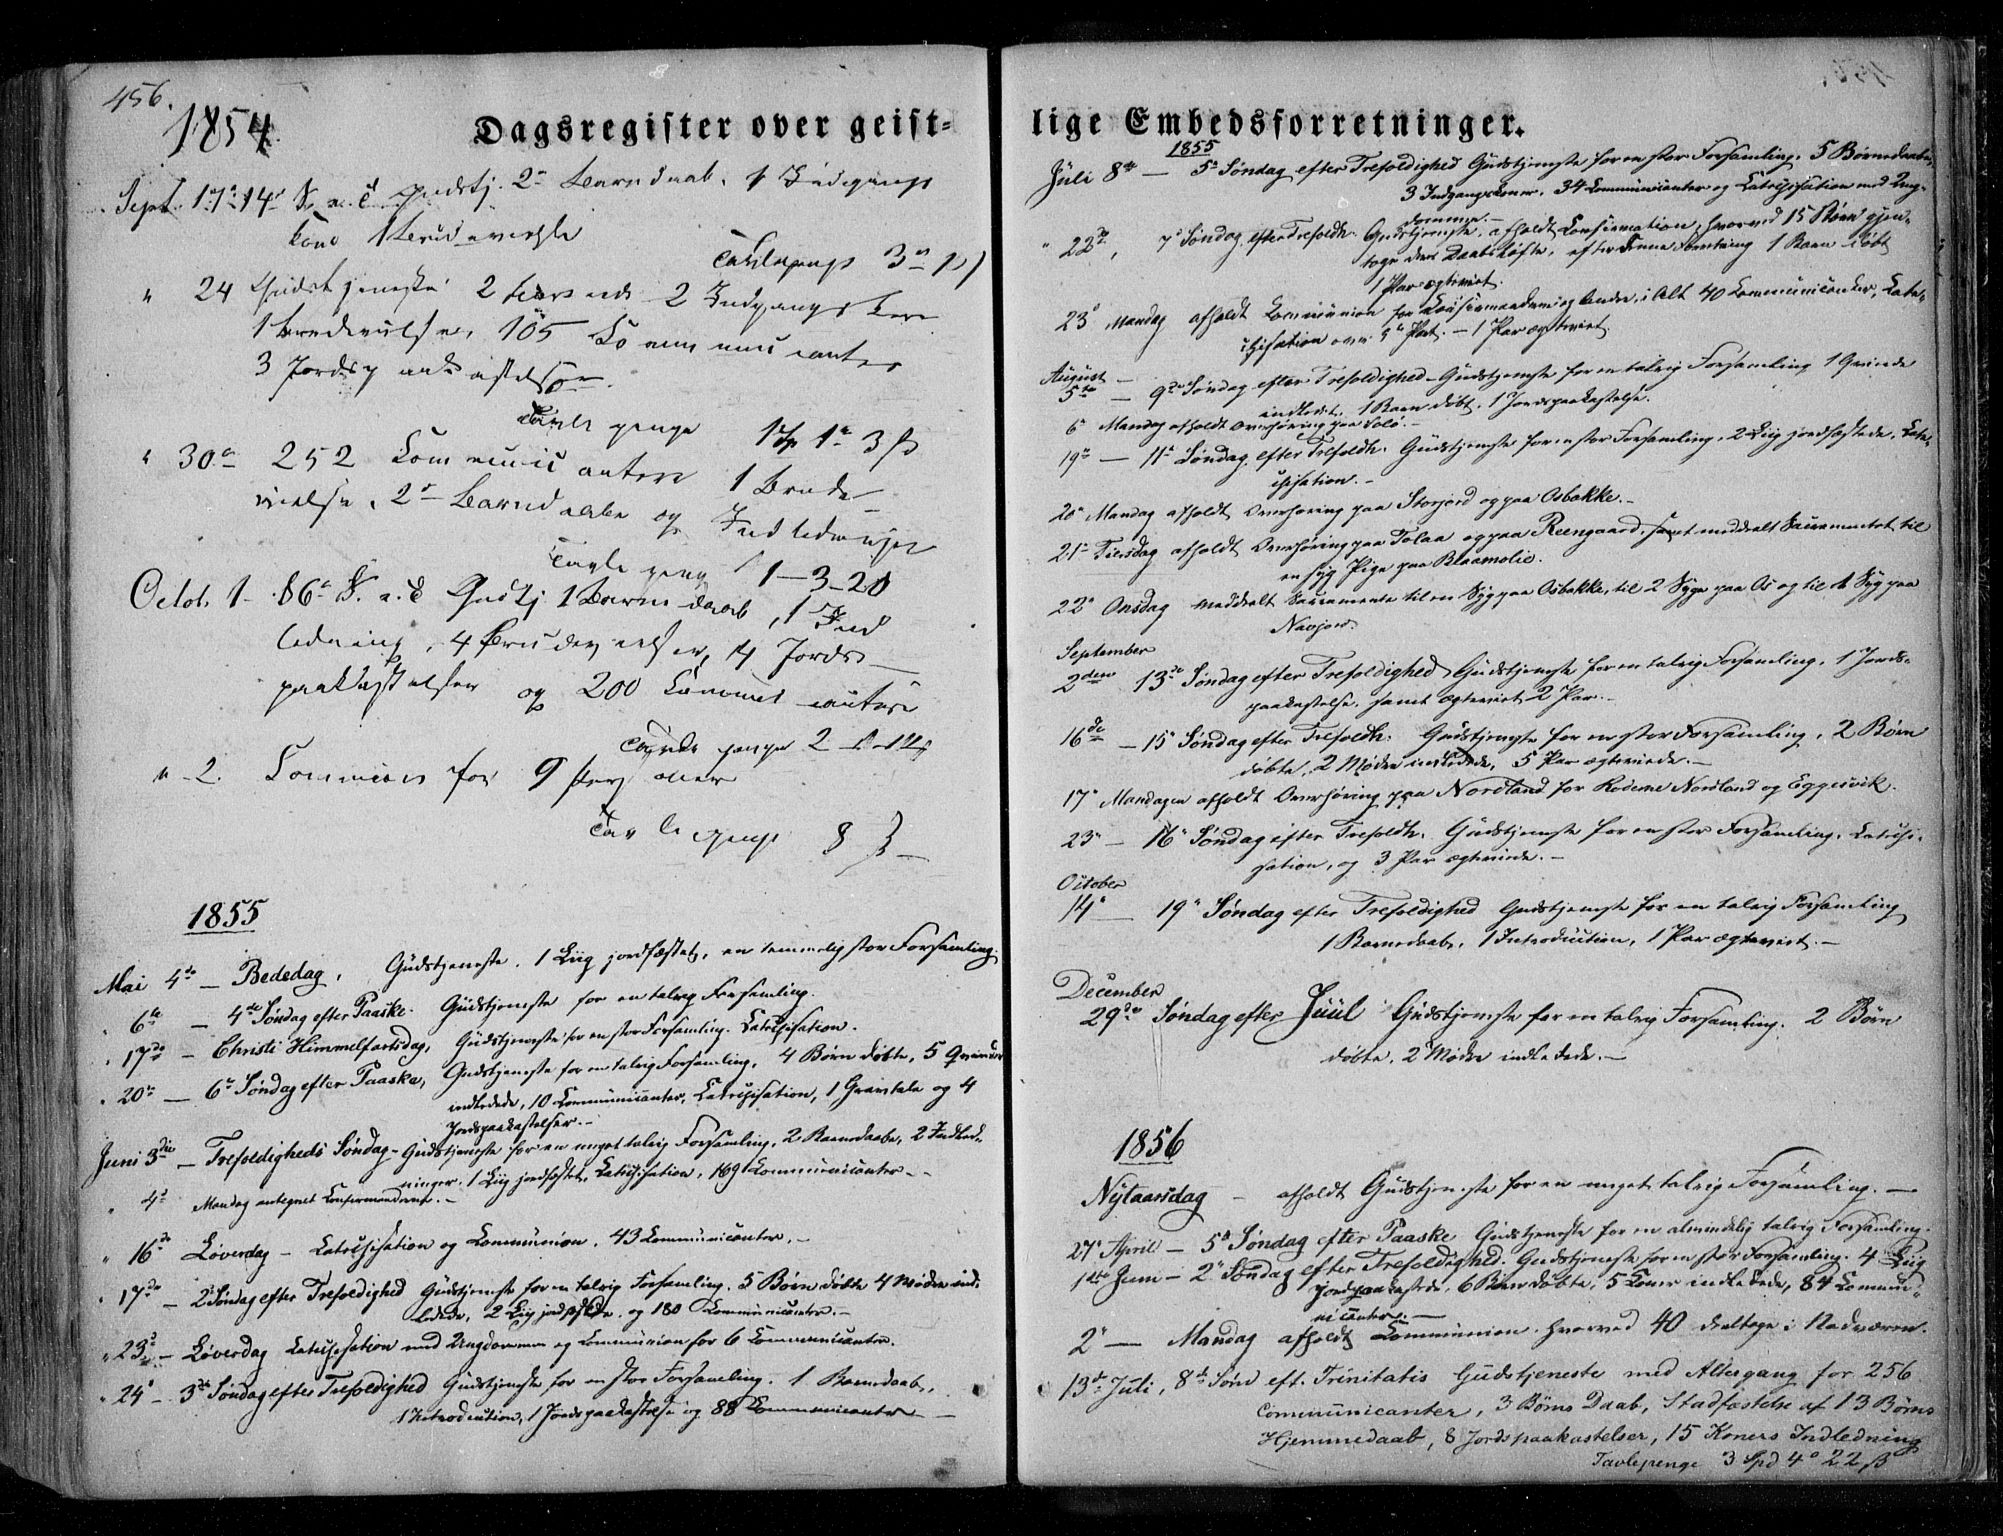 456.
1854
Dagsregister over geist=
Sept. 17de 14de S. a. T. Gudstj. 2de Barnedaab. 1 Indgangs
kone 1 Brudevielse
Tavlepenge 3
" 24 Gudstjeneste 2 2 Indgangskoner
1 Brudevielse, 105 Communicanter
3 Jordspaakastelser.
Tavlepenge 1 1 3 ß
" 30te 252 Communicanter 1 Brude
vielse, 2 Barnedaabe og Indledninger
Tavlepenge 1 - 3 - 20
Octob. 1 - 16de S. a. T. Gustj. 1 Barnedaab, 1 Ind
ledning, 4 Brudevielser, 4 Jords
paakastelser og 200 Communicantere
Tavlepenge 2
" 2. Communion for 9 Personer
Tavlepenge 8 ß
1855
Mai 4de - Bededag, Gudstjeneste. 1 Liig jordfæstet, en temmelig stor Forsamling.
" 6te - 4de Søndag efter Paaske. Gudstjeneste for en talrig Forsamling.
" 17de - Christi Himmelfartsdag, Gudstjeneste for en stor Forsamling. Catechisation.
" 20de - 6te Søndag efter Paaske, Gudstjeneste for en talrig Forsamling, 4 Børn døbte, 5 Qvinder
indledede, 10 Communicanter, Catechisation, 1 Gravtale og 4
Jordspaakastelser.-
Juni 3die - Trefoldigheds Søndag - Gudstjeneste for en meget talrig Forsamling, 2 Barnedaabe, 2 Indled-
ninger. 1 Liig jordfæstet, Catechisation, 169 Communicanter.-
" 4de Mandag antegnet Confirmanderne.-
" 16de Løverdag - Catechisation og Communion. 43 Communicanter.-
" 17de - 2 Søndag efter Trefoldighed Gudstjeneste for en talrig Forsamling. 5 Børn døbte 4 Mødre ind-
ledede, 2 Liig jordfæstede, og 180 Communicanter.-
" 23de - Løverdag Catechisation med Ungdommen og Communion for 6 Communicanter.
" 24de - 3die Søndag efter Trefoldighed Gudstjeneste for en stor Forsamling. 1 Barnedaab,
1 Introduction, 1 Jordspaakastelse og 88 Communicanter -
lige Embedsforretninger.
1855
Juli 8de - 5te Søndag efter Trefoldighed Gudstjeneste for en stor Forsamling. 5 Barnedaabe,
3 Indgangskoner. 34 Communicanter og Catechisation med Ung-
dommen.-
" 22de, 7de Søndag efter Trefoldh. Gudstjeneste, afholdt Confirmation, hvorved 15 Børn gjen-
toge deres Daabsløfte, efter denne Forretning 1 Barn døbt
1 Par ægteviet.
23de Mandag afholdt Communion for Confirmanderne og Andre, i Alt 40 Communicanter, Cate-
chisation over Part. - 1 Par ægteviet.
August
5te - 9de Søndag efter Trefoldighed - Gudstjeneste for en talrig Forsamling 1 Qvinde
indledet. 1 Barn døbt. 1 Jordspaakastelse.
6te Mandag afholdt Overhøring paa
19de - 11te Søndag efter Trefoldh. Gudstjeneste for en stor Forsamling, 2 Liig jordfæstede, Cate-
chisation.-
20de Mandag afholdt Overhøring paa Storjord og paa Osbakke.-
21de Tiersdag afholdt Overhøring paa Tolaa og paa Reengaard, samt meddeelt Sacramentet til
en syg Pige paa Blaamolie.
22de Onsdag meddeelt Sacramente til en Syg paa Osbakke, til 2 Syge paa Os og til 1 Syg paa
Navjord.
September
2den 13de Søndag efter Trefoldighed Gudstjeneste for en talrig Forsamling, 1 Jords-
paakastelse, samt ægteviet 2 Par.-
16de - 15de Søndag efter Trefoldh. Gudstjeneste for en stor Forsamling, 2 Børn
døbte, 2 Mødre indledede, 5 Par ægteviede.-
17de Mandagen afholdt Overhøring paa Nordland for Roderne Nordland og Eggesvik.
23de - 16de Søndag efter Trefoldh. Gudstjeneste for en stor Forsamling. Catechi-
sation, og 3 Par ægteviede.-
October
14de - 19de Søndag efter Trefoldighed Gudstjeneste for en talrig Forsamling
1 Barnedaab, 1 Introduction, 1 Par ægteviet.-
December
29de Søndag efter Juul Gudstjeneste for en talrig Forsamling. 2 Børn
døbte, 2 Mødre indledede.-
1856
Nytaarsdag - afholdt Gudstjeneste for en meget talrig Forsamling.-
27de April - 5te Søndag efter Paaske Gudstjeneste for en almindelig talrig Forsamling.
1ste Juni - 2de Søndag efter Trefoldighed. Gudstjeneste for en stor Forsamling. 4 Liig
jordpaakastede, 6 Børn døbte, 5 Koner indledede, 84 Commu-
nicanter.-
2de - Mandag afholdt Communion. hvorved 40 deeltoge i Nadveren.
13de Juli, 8de Sønd eft. Trinitatis Gudstjeneste med Altergang for 256
Communicanter, 3 Børns Daab, Stadfæstelse af 13 Børns
Hjemmedaab, 8 Jordspaakastelser, 15 Koners Indledning
Tavlepenge 3 Spd 4 22 ß